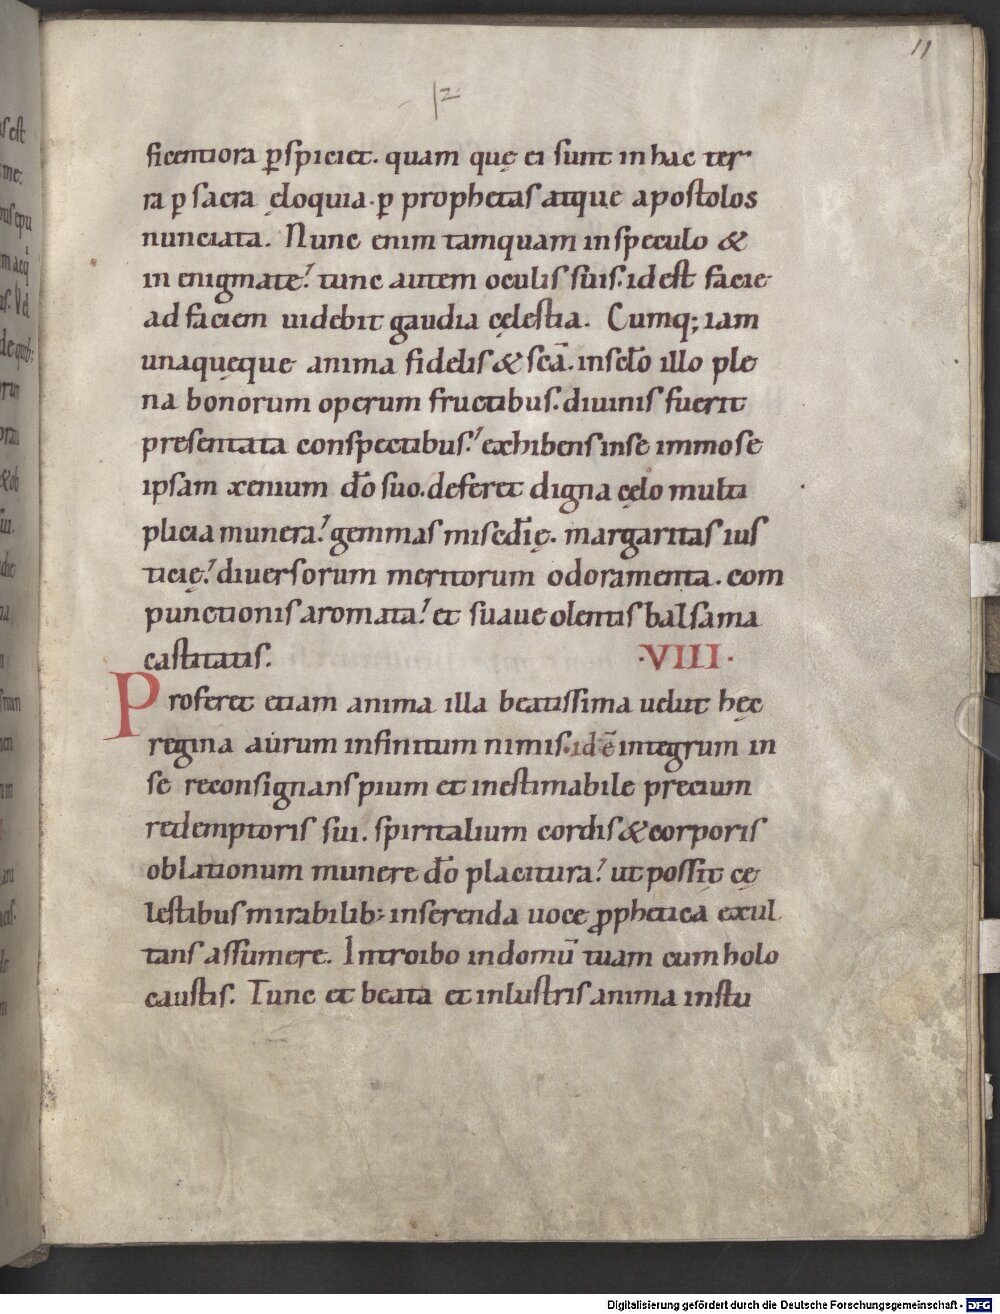 11
12
ficentiora ꝑspiciet. quam quę ei sunt in hac ter
ra ꝑ sacra ęloquia. ꝑ prophetas atque apostolos
nunciata. Nunc enim tamquam in speculo &
in enigmate? tunc autem oculis suis. id est facie
ad faciem uidebit gaudia cęlestia. Cumq; iam
unaquęque anima fidelis & scā. in sclo illo ple
na bonorum operum fructibus. diuinis fuerit
presentata conspectibus? exhibens in se immo se
ipsam xenium dō suo. deferet digna cęlo multi
plicia munera? gemmas misedię. margaritas ius
ticię? diuersorum meritorum odoramenta. com
punctionis aromata? et suaue olentis balsama
castitatis. ·VIII·
Proferet etiam anima illa beatissima uelut hęc
regina aurum infinitum nimis. id ē integrum in
se reconsignans pium et inestimabile precium
redemptoris sui. spiritalium cordis & corporis
oblationum munere dō placitura? ut possit cę
lestibus mirabilib; inserenda uoce ꝓphetica exul
tans assumere. Introibo in domū tuam cum holo
caustis. Tunc et beata et inlustris anima instu
Digitalisierung gefördert durch die Deutsche Forschungsgemeinschaft - DFG